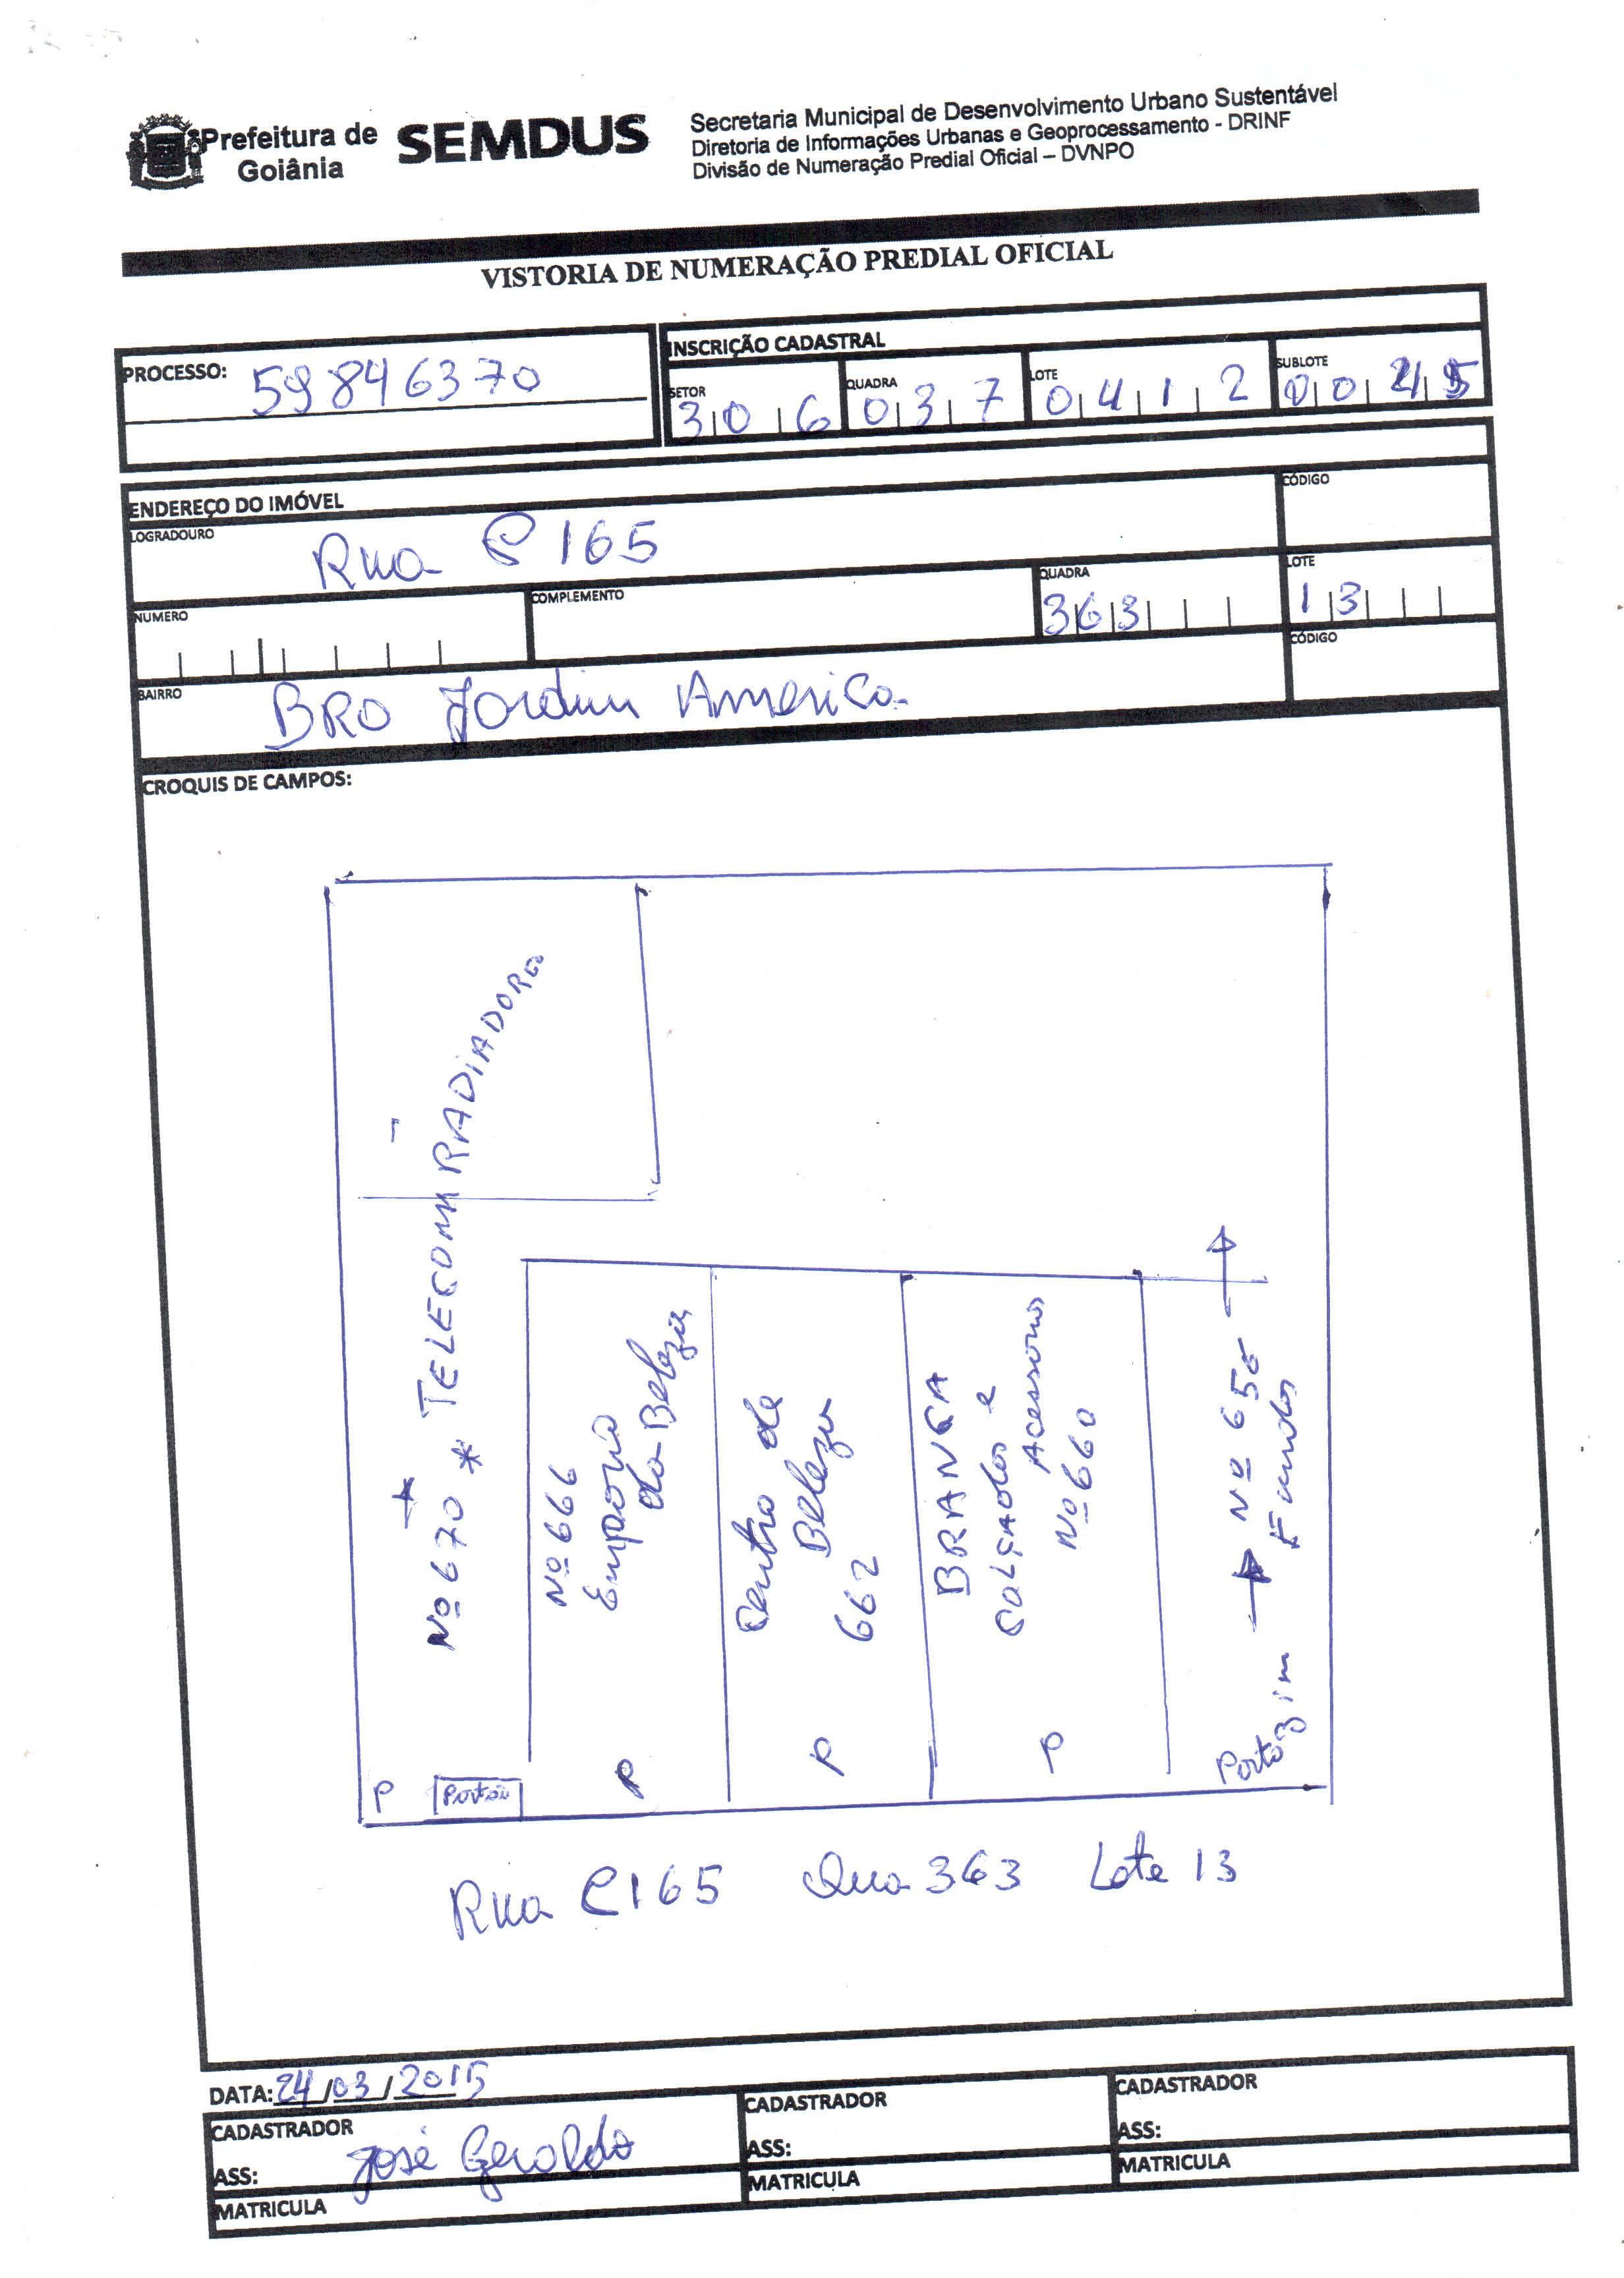 Prefeitura de Goiânia
SEMDUS
Secretaria Municipal de Desenvolvimento Urbano Sustentável
Diretoria de Informações Urbanas e Geoprocessamento - DRINF
Divisão de Numeração Predial Oficial – DVNPO
VISTORIA DE NUMERAÇÃO PREDIAL OFICIAL
PROCESSO: 59846370
INSCRIÇÃO CADASTRAL
SETOR 306
QUADRA 037
LOTE 0412
SUBLOTE
ENDEREÇO DO IMÓVEL
LOGRADOURO Rua C 165
CÓDIGO
NUMERO
COMPLEMENTO
QUADRA 363
LOTE 13
BAIRRO BRO Jardim America
CÓDIGO
CROQUIS DE CAMPOS:
Nº 670 * TELECOM RADIADORES
Nº 666
Emporio
da Beleza
Centro de
Beleza
662
BRANCA
Calçados e
Acessorios
Nº 660
Nº 656
Fundos
P
Portão
P
P
P
Portãozim
Rua C165 Qua 363 Lote 13
DATA: 24/03/2015
CADASTRADOR
ASS: José Geraldo
MATRICULA
CADASTRADOR
ASS:
MATRICULA
CADASTRADOR
ASS:
MATRICULA